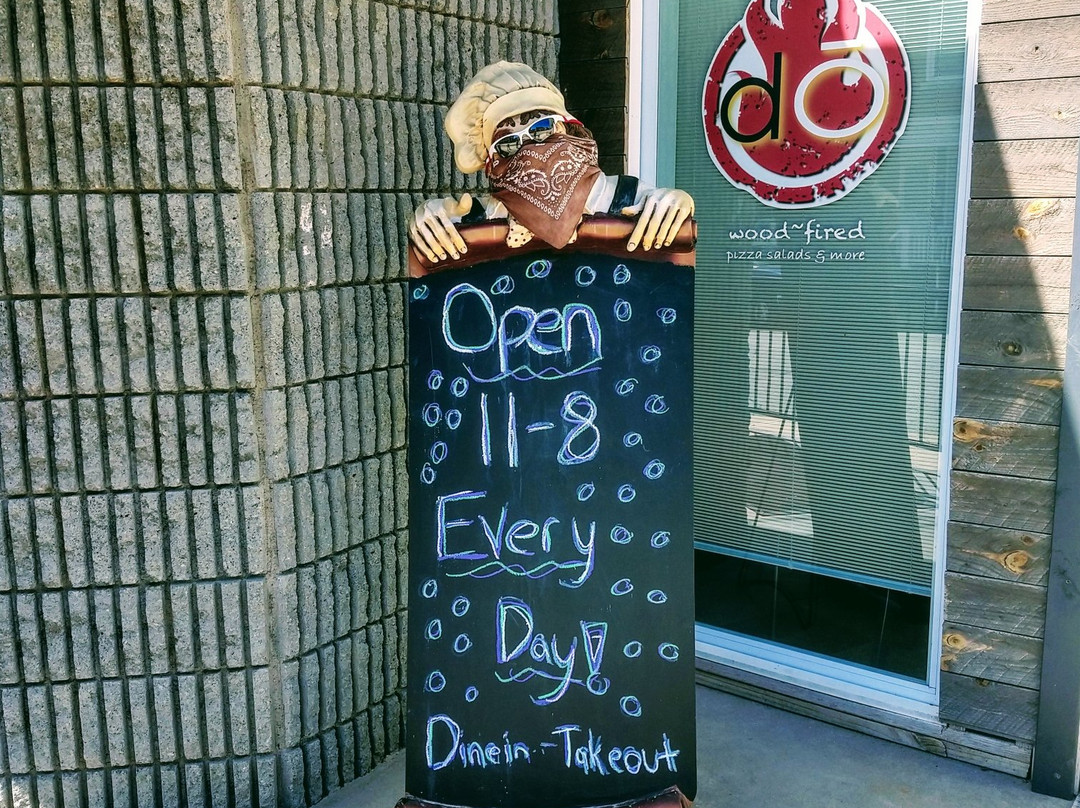 dō
wood~fired
pizza salads & more
Open
11-8
Every
Day!
Dinein - Takeout